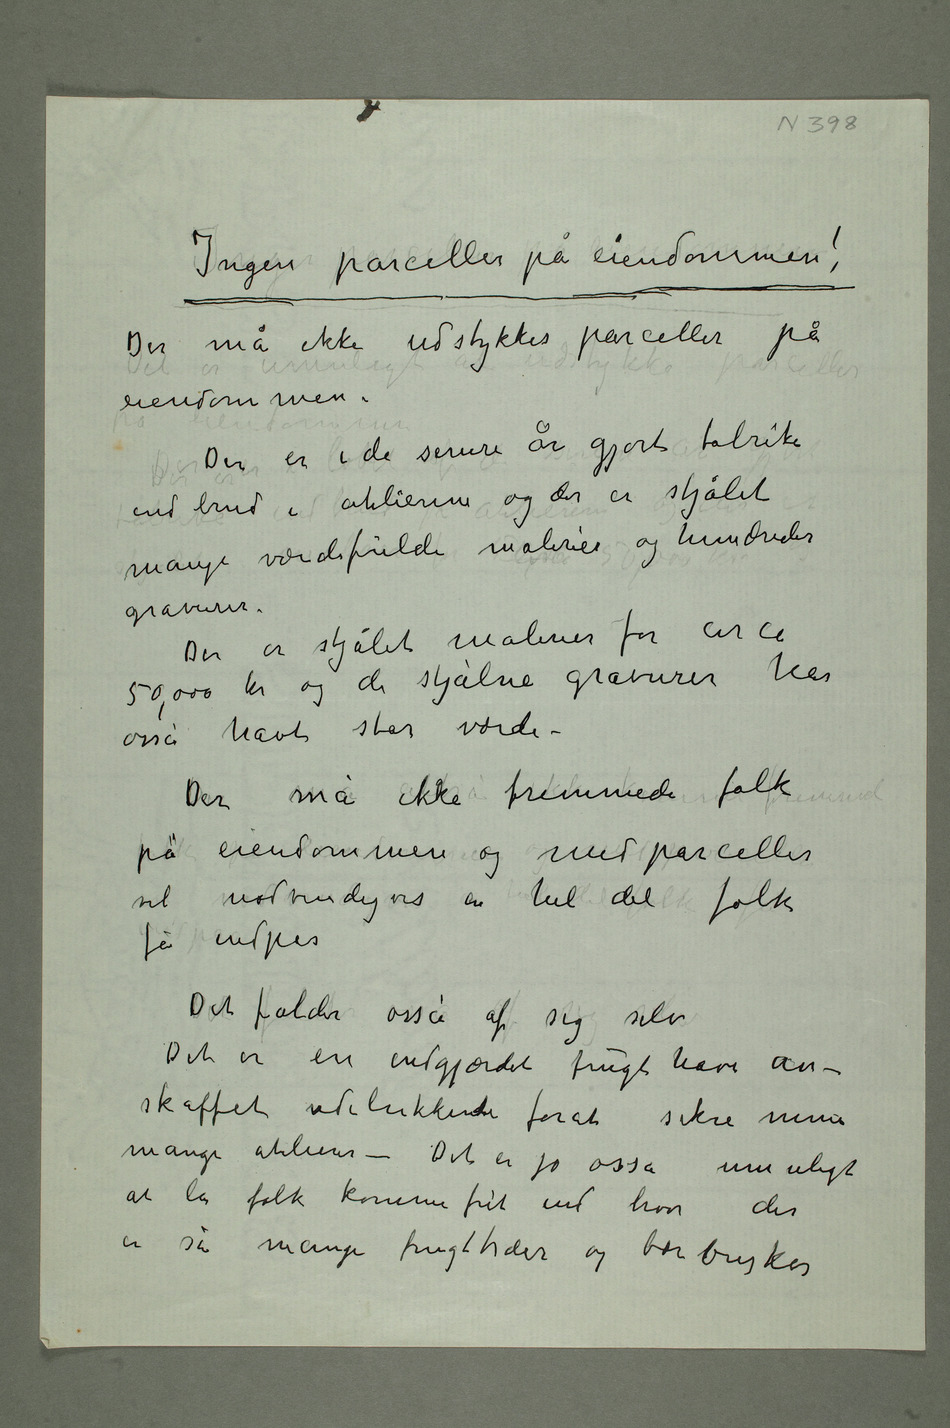 N 398
Ingen parceller på eiendommen!
Der må ikke udstykkes parceller på
eiendommen.
Der er i de senere år gjort talrike
indbrud i atelierene og der er stjålet
mange værdifulde malerier og hundreder
gravurer.
Der er stjålet malerier for circa
50,000 kr og de stjålne gravurer har
osså havt stor værdi –
Der må ikke fremmede folk
på eiendommen og med parceller
vil nødvendigvis en hel del folk
få indpas
Det falder osså af sig selv
Det er en indgjærdet frugthave an–
skaffet udelukkende forat sikre mine
mange atelierer – Det er jo osså umuligt
at la folk komme frit ind hvor der
er så mange frugttræer og bærbuskes